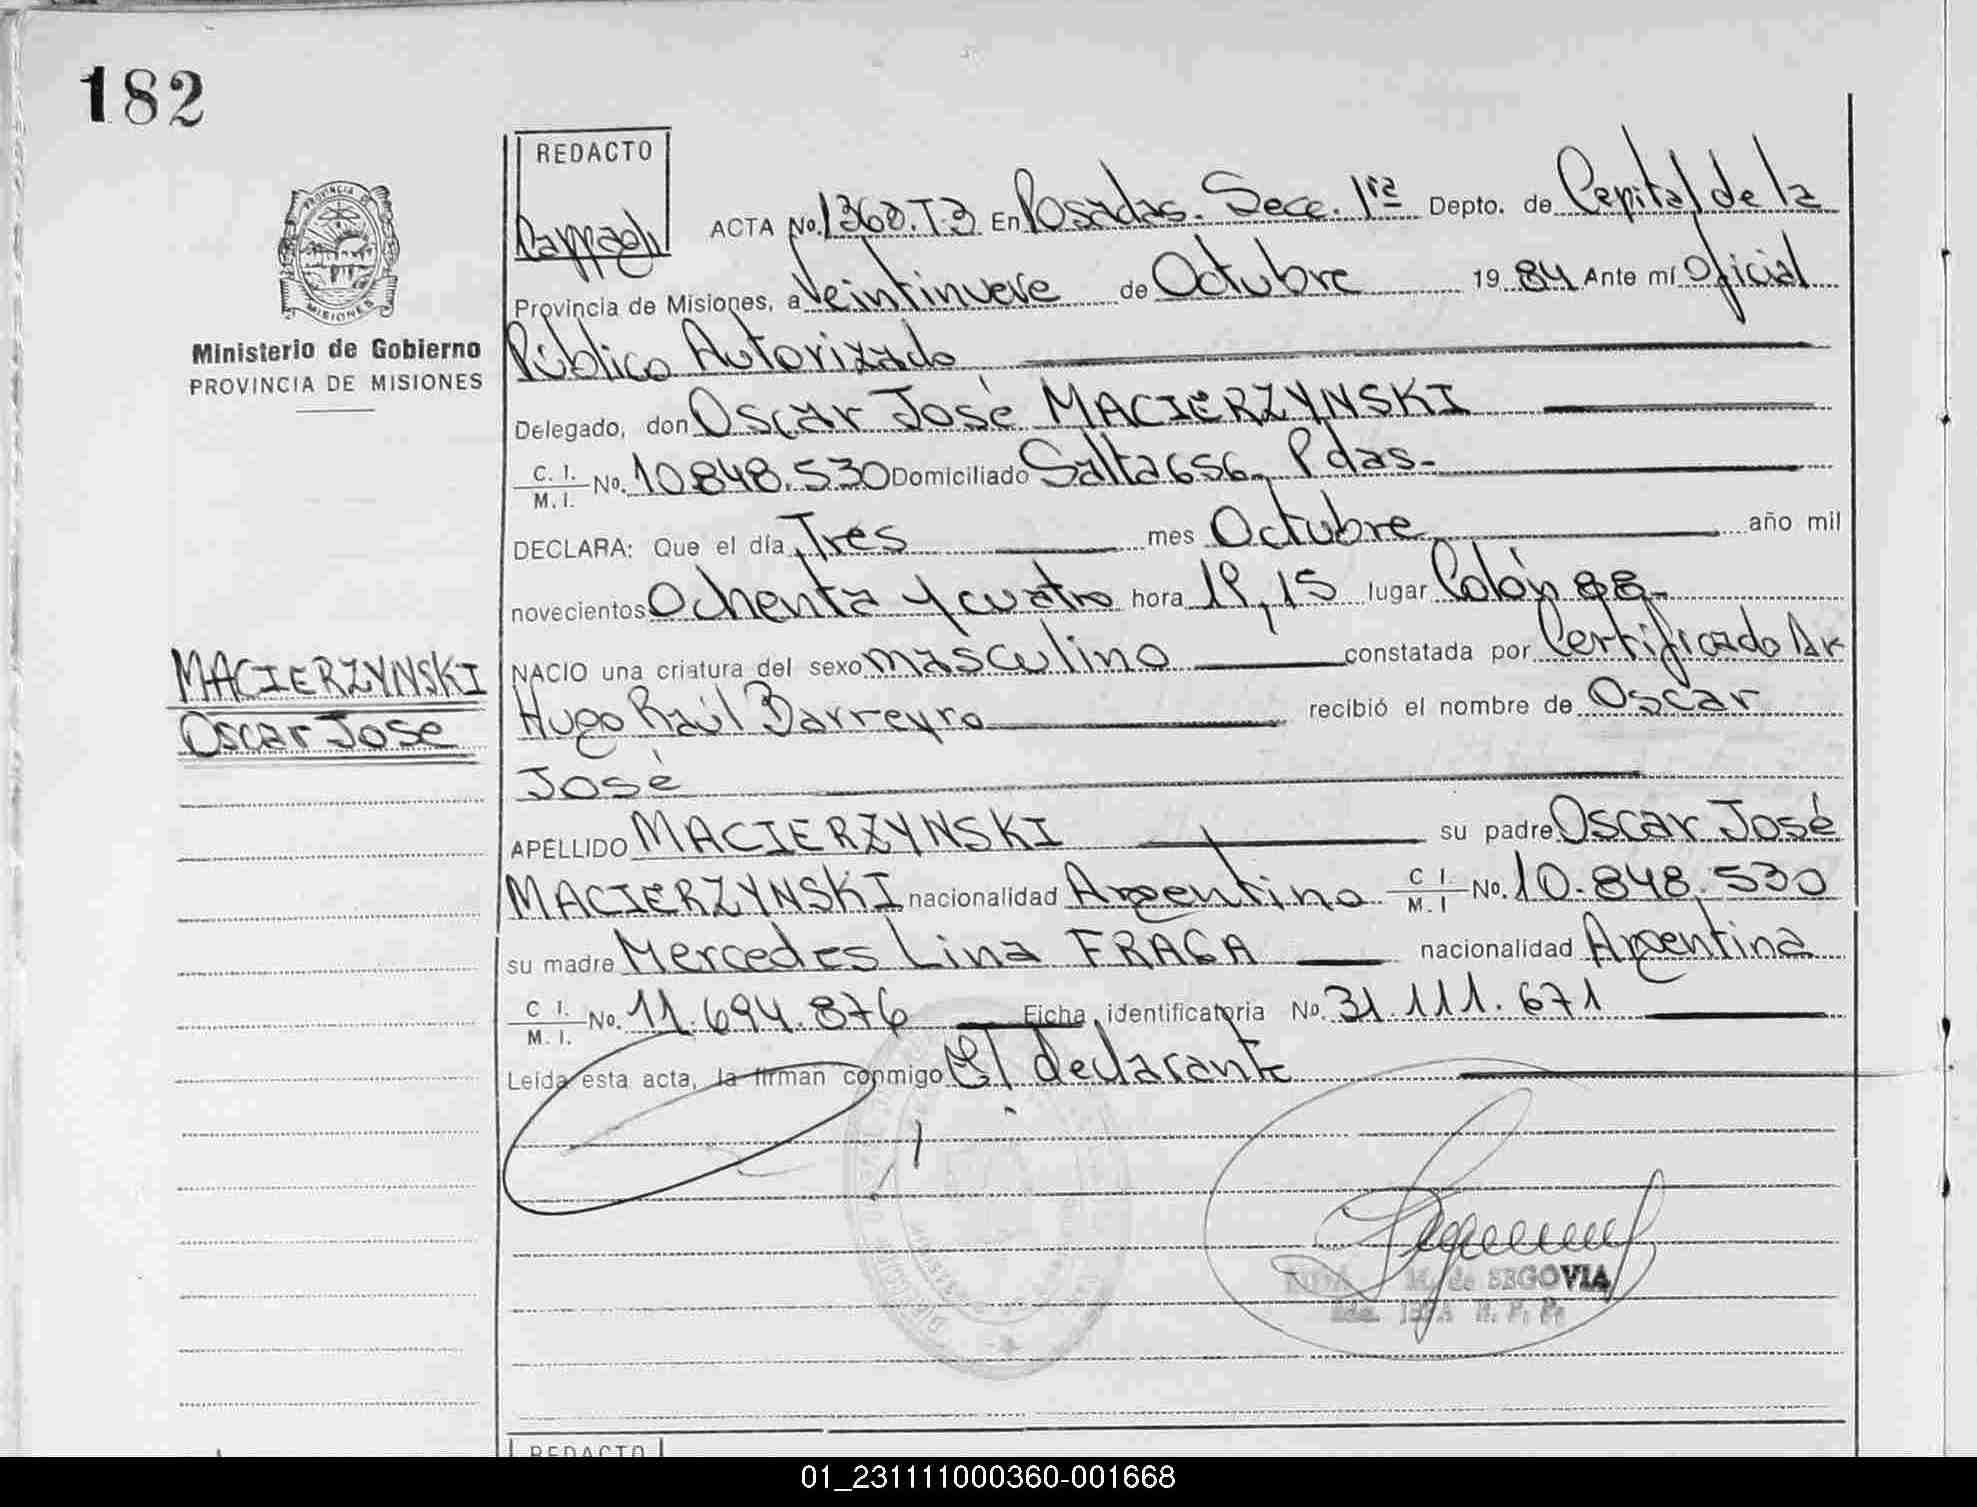 182
REDACTO
PROVINCIA DE
MISIONES
Ministerio de Gobierno
PROVINCIA DE MISIONES
ACTA No. 1360.T.3 En Posadas. Secc. 1ra Depto. de Capital de la
Provincia de Misiones, a Veintinueve de Octubre 19 84 Ante mí Oficial
Público Autorizado
Delegado, don Oscar José MACIERZYNSKI
C. I. / M. I. No. 10.848.530 Domiciliado Salta 656. Pdas.-
DECLARA: Que el día Tres mes Octubre año mil
novecientos Ochenta y cuatro hora 19,15 lugar Colón
NACIO una criatura del sexo masculino constatada por Certificado Dr
Hugo Raúl Barreyro recibió el nombre de Oscar
José
MACIERZYNSKI
Oscar Jose
APELLIDO MACIERZYNSKI su padre Oscar José
MACIERZYNSKI nacionalidad Argentino C I. / M. I No. 10.848.530
su madre Mercedes Lina FRAGA nacionalidad Argentina
C I. / M. I. No. 11.694.876 Ficha identificatoria No. 31.111.671
Leída esta acta, la firman conmigo El declarante
M. de SEGOVIA
JEFA R. P. P.
REDACTO
01_231111000360-001668